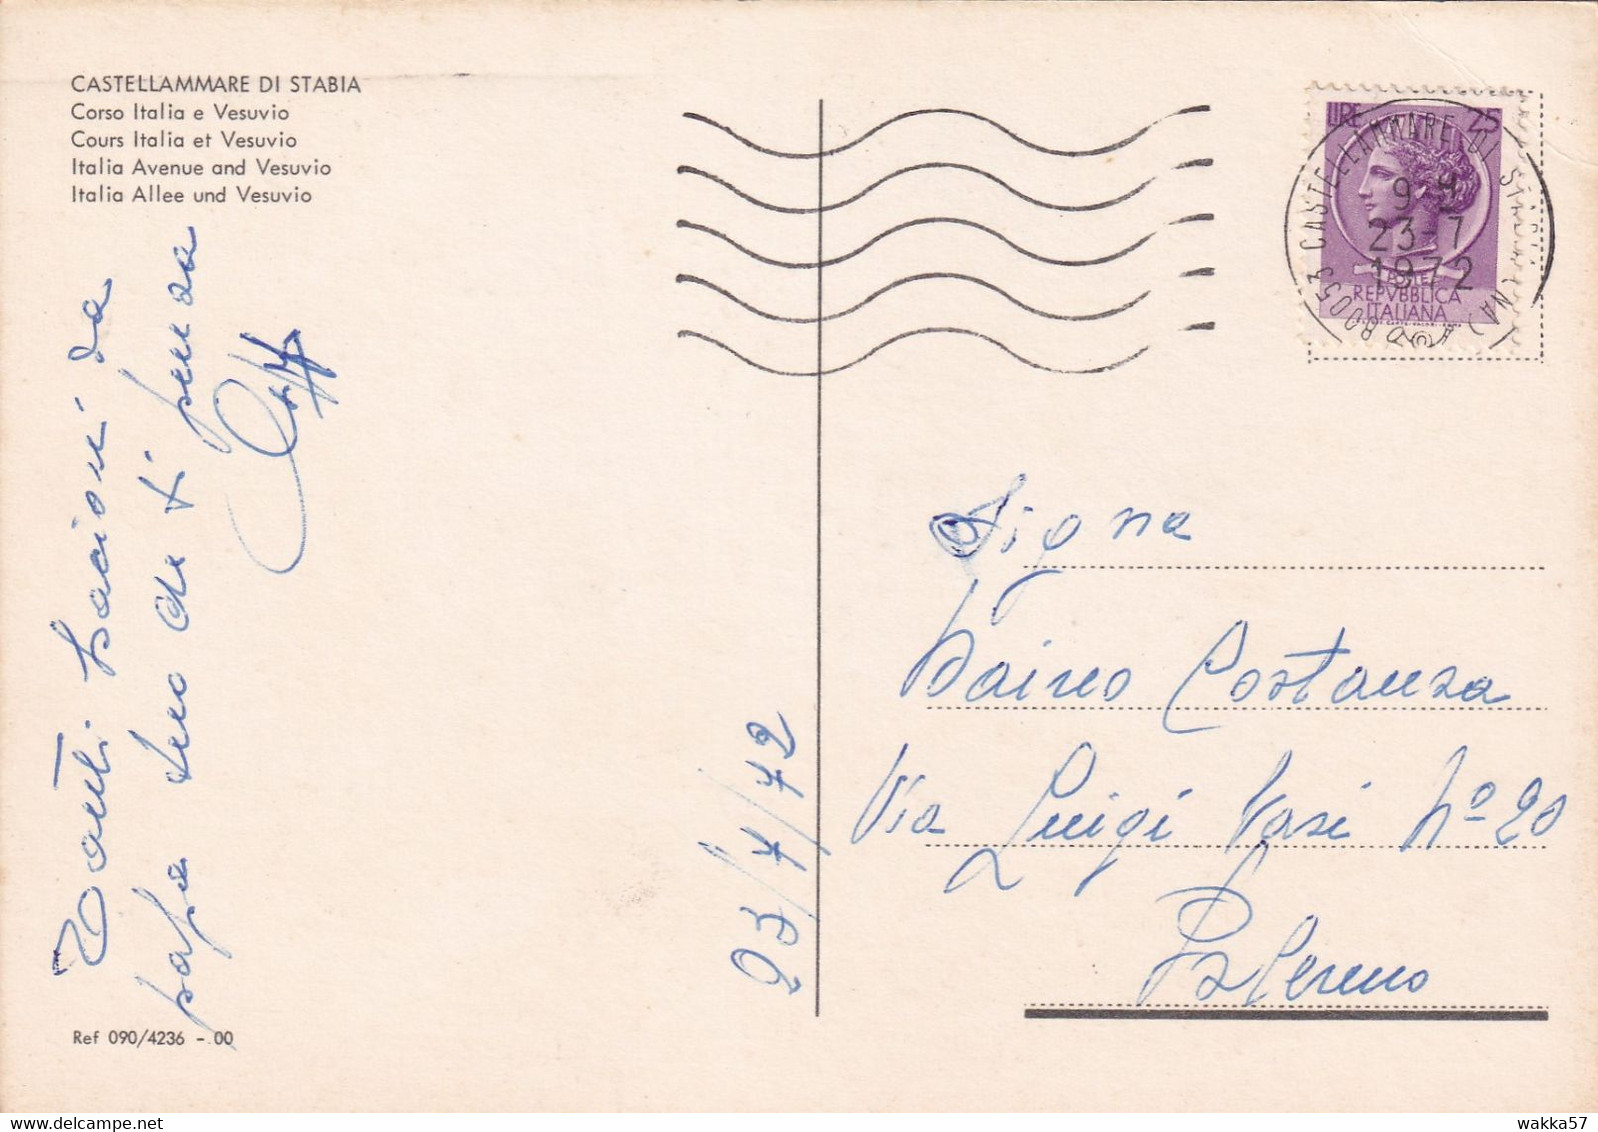 CASTELLAMMARE DI STABIA
Corso Italia e Vesuvio
Cours Italia et Vesuvio
Italia Avenue and Vesuvio
Italia Allee und Vesuvio
Tanti bacioni da
papà tuo che ti pensa
23/7/72
Ref 090/4236 - 00
LIRE 25
REPVBBLICA
ITALIANA
80053 CASTELLAMMARE DI STABIA (NA)
9-9
23-7
1972
Signa
Daino Costanza
Via Luigi Vasi N° 20
Palermo
wakka57